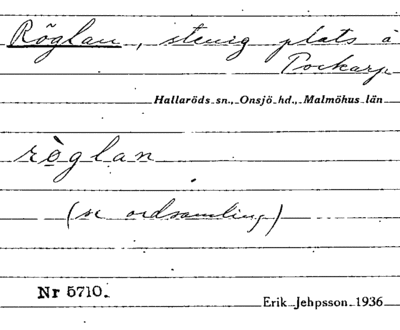 Röglan, stenig plats å
Pockarp
Hallaröds sn., Onsjö hd., Malmöhus län
röglan
(se ordsamling)
Nr 5710.
Erik Jehpsson 1936